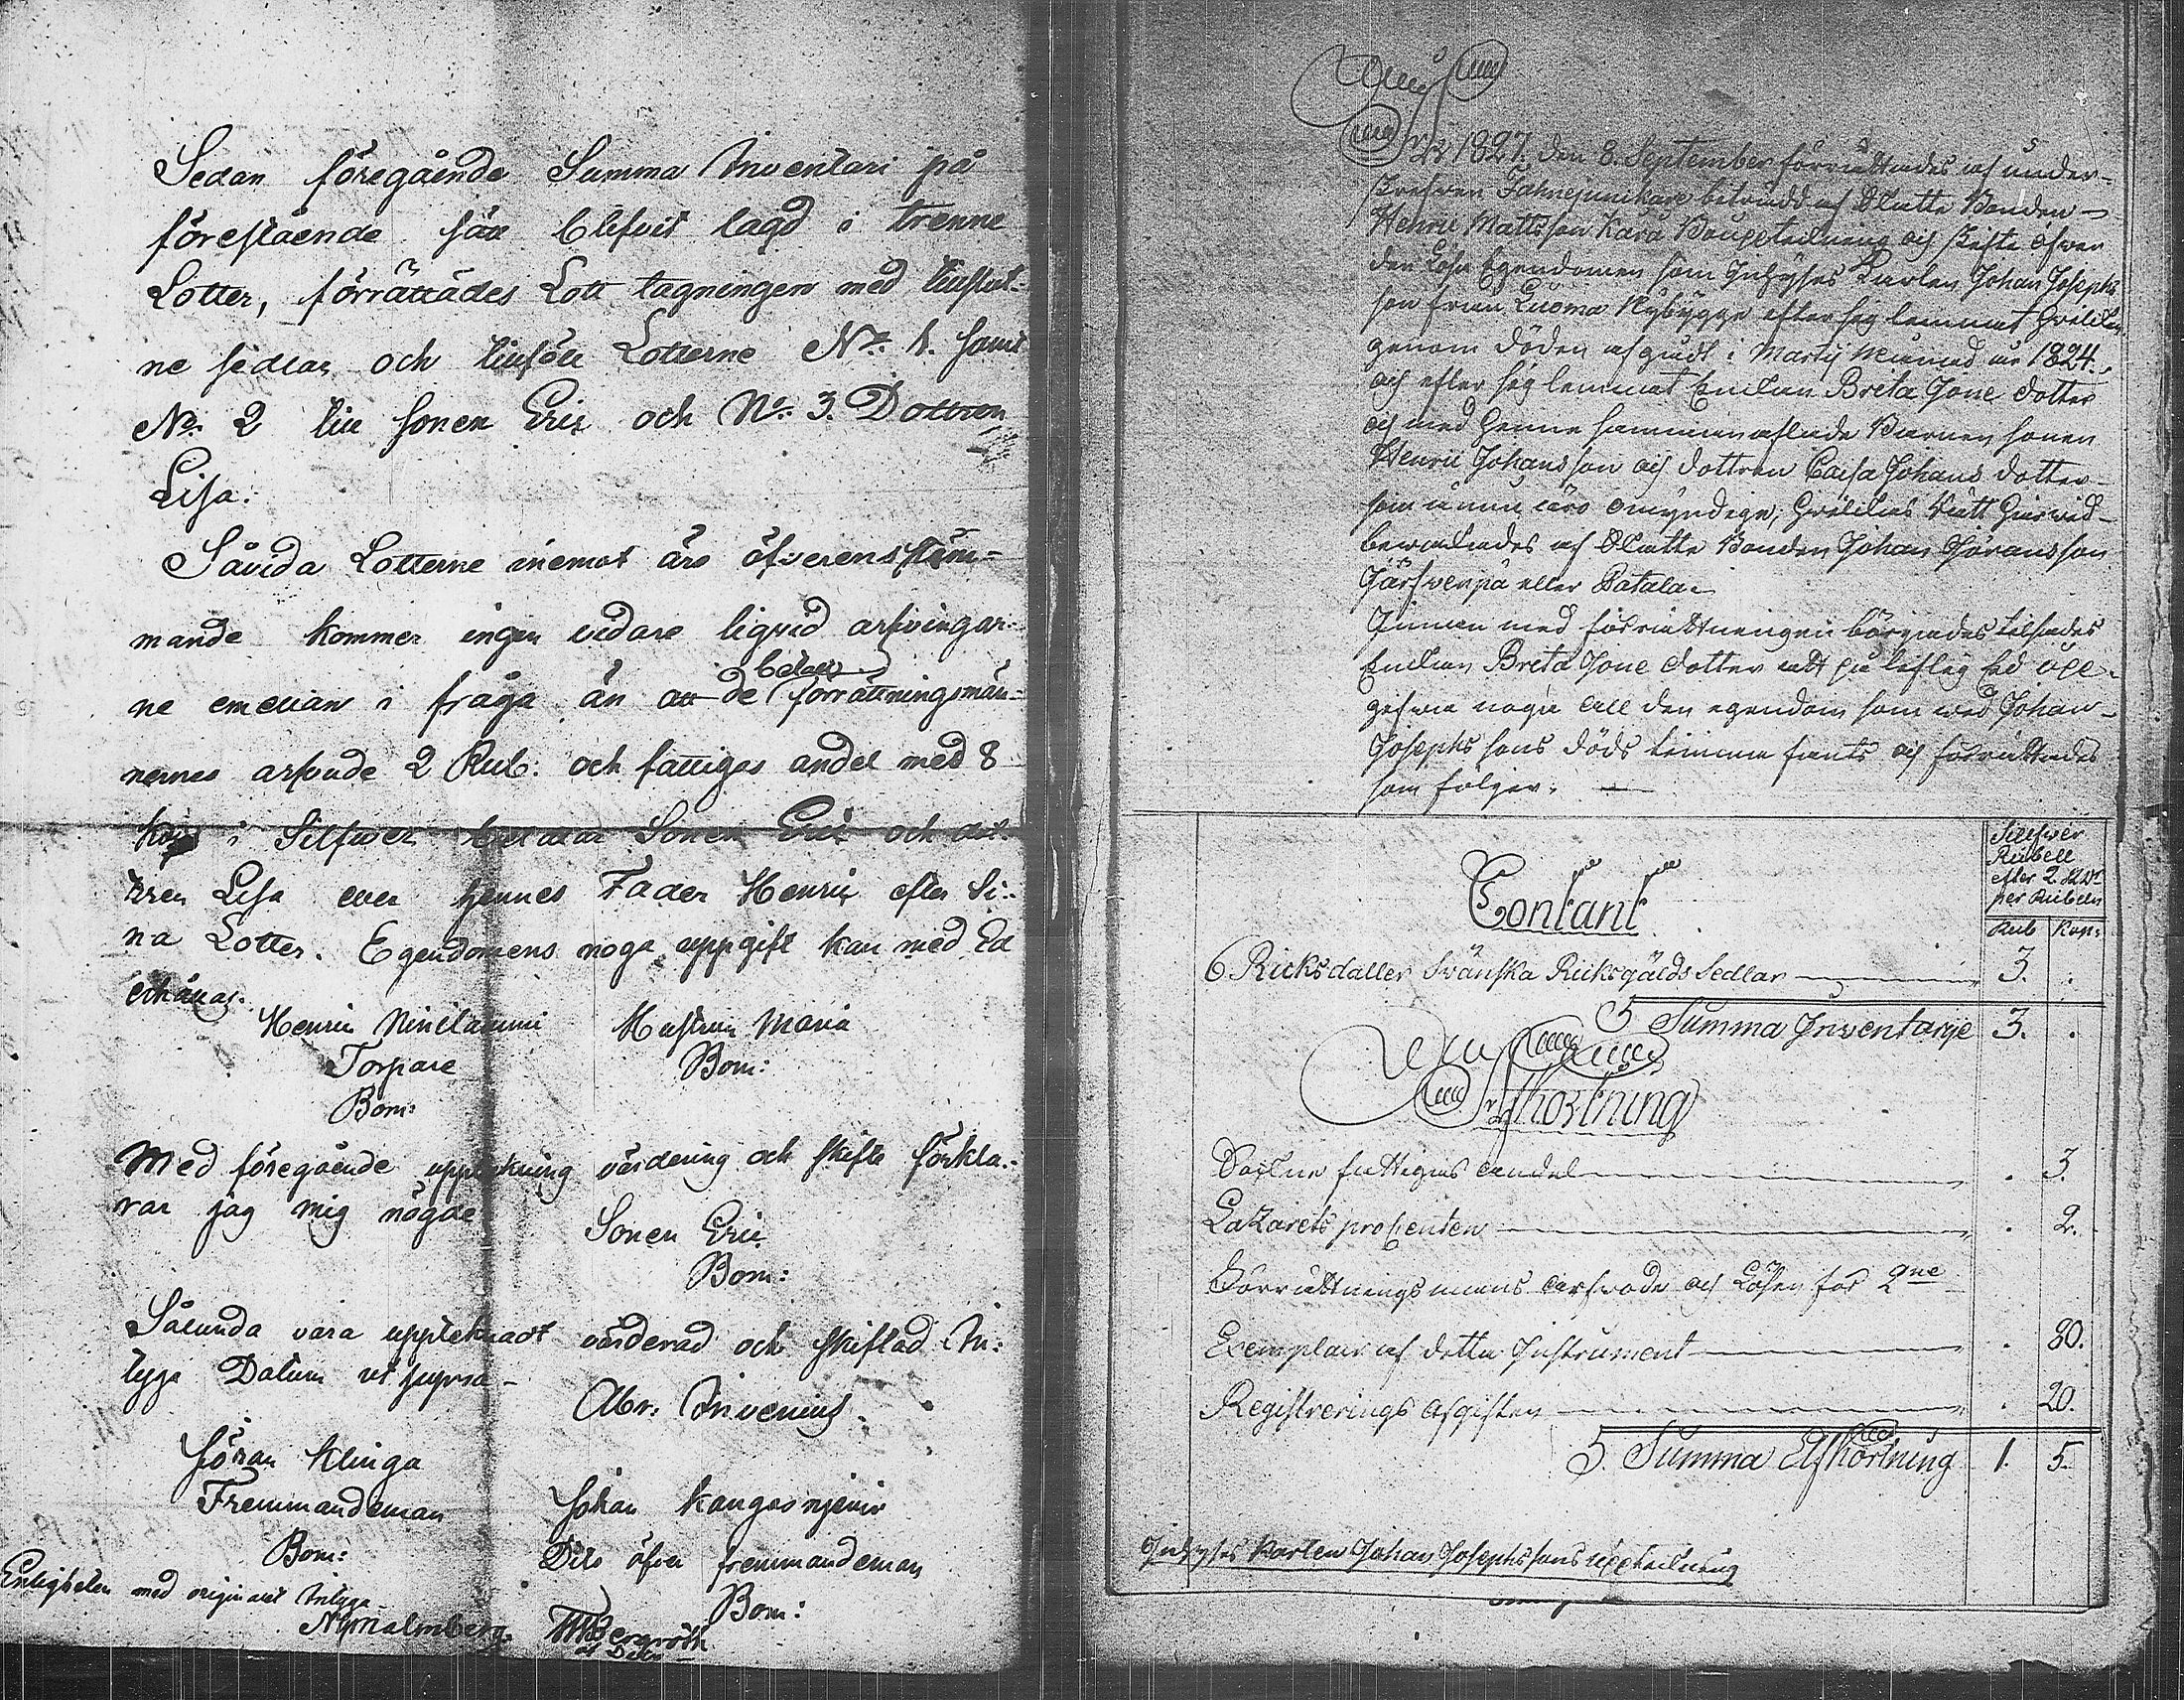 Sedan föregående Summa Inventari på
föreslående sätt blifvit lagd i trenne
Lotter, förrättades Lott tagningen med tillslut-
ne sedlar och tillföll Lotterne N:o 1. samt
N:o 2 till sonen Eric och N:o 3. Dottren
Lisa.
Sålunda Lotterne inemot äro öfverensstäm-
mande kommer ingen vidare liqvid arfvingar-
ne emellan i fråga än att de förrättningsmän-
nernes arfvode 2 Rub: och fattiges andel med 8
kop i Silfwer betalar Sonen Eric och dot-
tren Lisa eller hennes Fader Henric efter Si-
na Lotter. Egendomens noga uppgift kan med Ed
erhållas.
Henric Niniluummi Hustrun Maria
Torpare Bom:
Bom:
Med föregående uppteckning värdering och skifte förkla-
rar jag mig nögde
Sonen Eric
Bom:
Sålunda vara upptecknadt värderad och skiftad In-
tyga Datum ut supra
Abr: Invenius
Jöran Klinga
Fremmandeman Johan Kangasnjemi
Bom: Dito öfver fremmandeman
Bom:
Enligheten med originalet Intyga
N Malmberg. Bergroth
År 1827. den 8. September förrättades af under-
skrefwen Fahnejunkare beträdd af Skatte Bonden
Henric Mattsson Kärä Bouppteckning och skifte öfwer
den Lösa Egendomen som Inhyses Karlen Johan Josephs
son från Luoma Nybygge efter sig lemnat hwilken
genom döden afgådt i Martij Månad år 1824.,
och efter sig lemnat Enkan Brita Jone dotter
och med henne sammanaflade Barnen sonen
Henric Johansson och dottren Caisa Johans dotter
som ännu äro omyndige, hwilkas Rätt härwid
bewakades af Skatte Bonden Johan Göransson
Järfwenpä eller Patala.
Innan med förrättningen börjades tilsades
Enkan Breta Jone dotter att på liflig Ed upp-
gifwa noga all den egendom som wid Johan
Josephs sons döds timma fants och förrättades
som följer.
Sillfwer
Rubell
efter 2. Rdr
per Rubeln
Rub Kop:
Contant
6. Ricksdaller Svänska Ricksgälds Sedlar 3. .
S Summa Inventarije 3. .
Afkortning
Sockne fattigas andel . 3.
Lazarets procenten . 2.
Förrättnings manns arfwode och Lösen för 2ne
Exemplar af detta Instrument . 80.
Registrerings afgiften . 20.
S. Summa Afkortning 1. 5.
Inhyses Karlen Johan Josephssons uppteckning